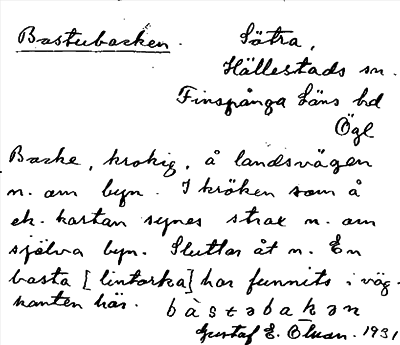 Bastubacken.
Sötra,
Hällestads sn.
Finspånga läns hd
Ögl
Backe, krokig, å landsvägen
n. om byn. I kröken som å
ek. kartan synes strax n. om
själva byn. Sluttar åt n. En
basta [lintorka] har funnits i väg-
kanten här. bàstəbakən
Gustaf E. Ölman. 1931